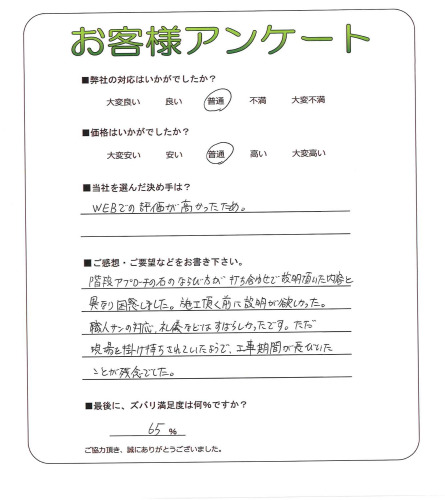 お客様アンケート
■弊社の対応はいかがでしたか？
大変良い　良い　普通　不満　大変不満
■価格はいかがでしたか？
大変安い　安い　普通　高い　大変高い
■当社を選んだ決め手は？
WEBでの評価が高かったため。
■ご感想・ご要望などをお書き下さい。
階段アプローチの石のならび方が打ち合わせで説明頂いた内容と
異なり困惑しました。施工頂く前に説明が欲しかった。
職人サンの対応、礼儀などはすばらしかったです。ただ
現場を掛け持ちされていたようで、工事期間が長びいた
ことが残念でした。
■最後に、ズバリ満足度は何%ですか？
65 %
ご協力頂き、誠にありがとうございました。